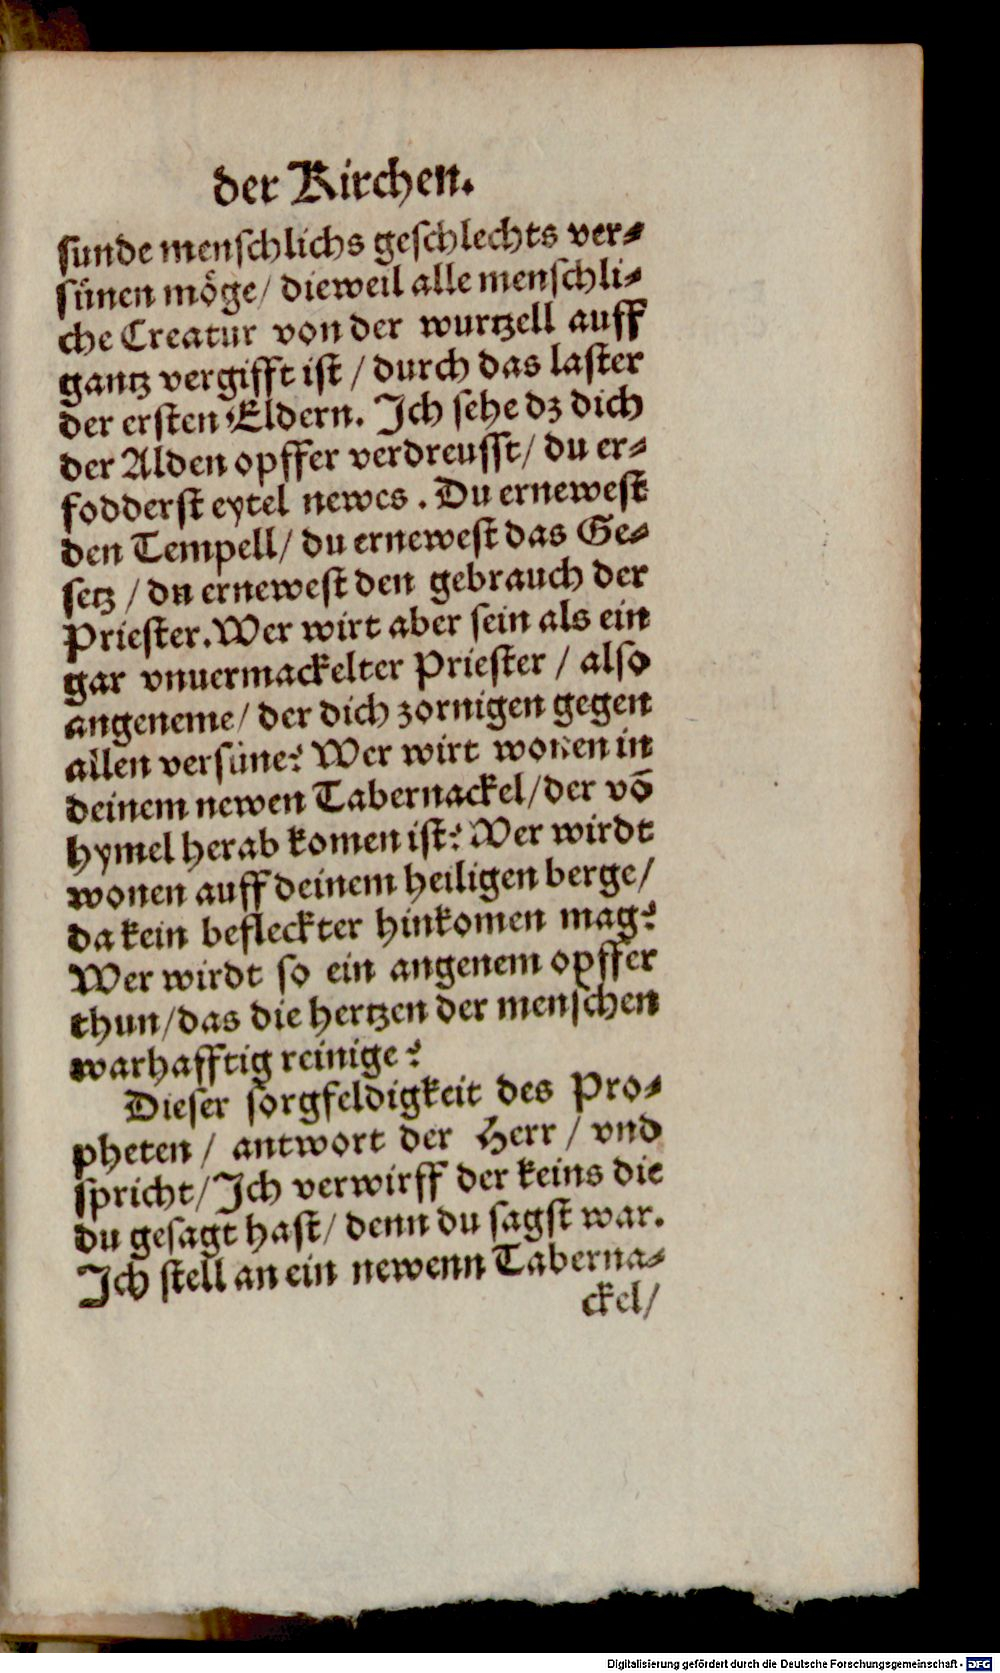 der Kirchen.
sunde menschlichs geschlechts ver⸗
sünen möge/ dieweil alle menschli⸗
che Creatur von der wurtzell auff
gantz vergifft ist / durch das laster
der ersten Eldern. Ich sehe dz dich
der Alden opffer verdreusst/ du er⸗
fodderst eytel newes . Du ernewest
den Tempell/ du ernewest das Ge⸗
setz / du ernewest den gebrauch der
Priester. Wer wirt aber sein als ein
gar vnuermackelter Priester / also
angeneme/ der dich zornigen gegen
allen versüne? Wer wirt wonen in
deinem newen Tabernackel/ der vō
hymel herab komen ist? Wer wirdt
wonen auff deinem heiligen berge/
da kein befleckter hinkomen mag?
Wer wirdt so ein angenem opffer
thun/ das die hertzen der menschen
warhafftig reinige?
Dieser sorgfeldigkeit des Pro⸗
pheten / antwort der Herr / vnd
spricht/ Ich verwirff der keins die
du gesagt hast/ denn du sagst war.
Ich stell an ein newenn Taberna⸗
ckel/
Digitalisierung gefördert durch die Deutsche Forschungsgemeinschaft - DFG